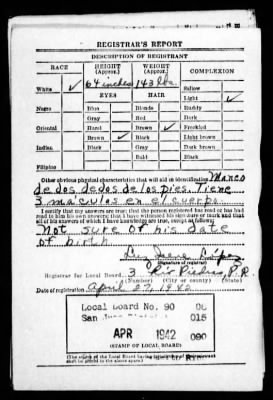 REGISTRAR'S REPORT
DESCRIPTION OF REGISTRANT
RACE HEIGHT (Approx.) WEIGHT (Approx.) COMPLEXION
White ✓ 64 inches 143 lbs. Sallow
EYES HAIR Light ✓
Negro Blue Blonde Ruddy
Gray Red Dark
Oriental Hazel Brown ✓ Freckled
Brown ✓ Black Light brown
Indian Black Gray Dark brown
Bald Black
Filipino
Other obvious physical characteristics that will aid in identification Manco
de dos dedos de los pies. Tiene
3 maculas en el cuerpo.
I certify that my answers are true; that the person registered has read or has had
read to him his own answers; that I have witnessed his signature or mark and that
all of his answers of which I have knowledge are true, except as follows:
Not sure of his date
of birth.
López
(Signature of registrar)
Registrar for Local Board 3 Río Piedras, P.R.
(Number) (City or county) (State)
Date of registration April 27, 1942
Local Board No. 90
San
015
APR 1942 090
(STAMP OF LOCAL BOARD)
(The stamp of the Local Board having
shall be placed in the above space.)